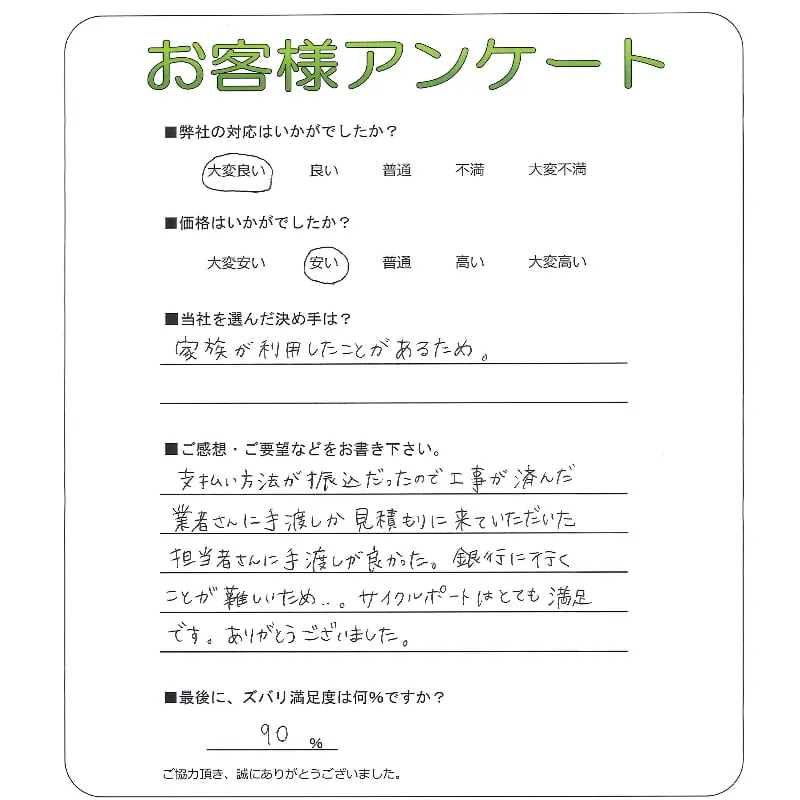 お客様アンケート
■弊社の対応はいかがでしたか？
大変良い　良い　普通　不満　大変不満
■価格はいかがでしたか？
大変安い　安い　普通　高い　大変高い
■当社を選んだ決め手は？
家族が利用したことがあるため。
■ご感想・ご要望などをお書き下さい。
支払い方法が振込だったので工事が済んだ
業者さんに手渡しか見積もりに来ていただいた
担当者さんに手渡しが良かった。銀行に行く
ことが難しいため…。サイクルポートはとても満足
です。ありがとうございました。
■最後に、ズバリ満足度は何％ですか？
90 %
ご協力頂き、誠にありがとうございました。